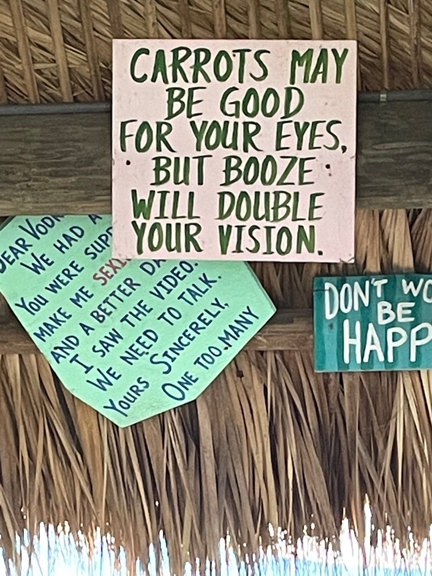 CARROTS MAY
BE GOOD
FOR YOUR EYES,
BUT BOOZE
WILL DOUBLE
YOUR VISION.
DEAR
WE HAD A
YOU WERE
MAKE ME
AND A BETTER
I SAW THE VIDEO.
WE NEED TO TALK.
YOURS SINCERELY,
ONE TOO MANY
DON'T
BE